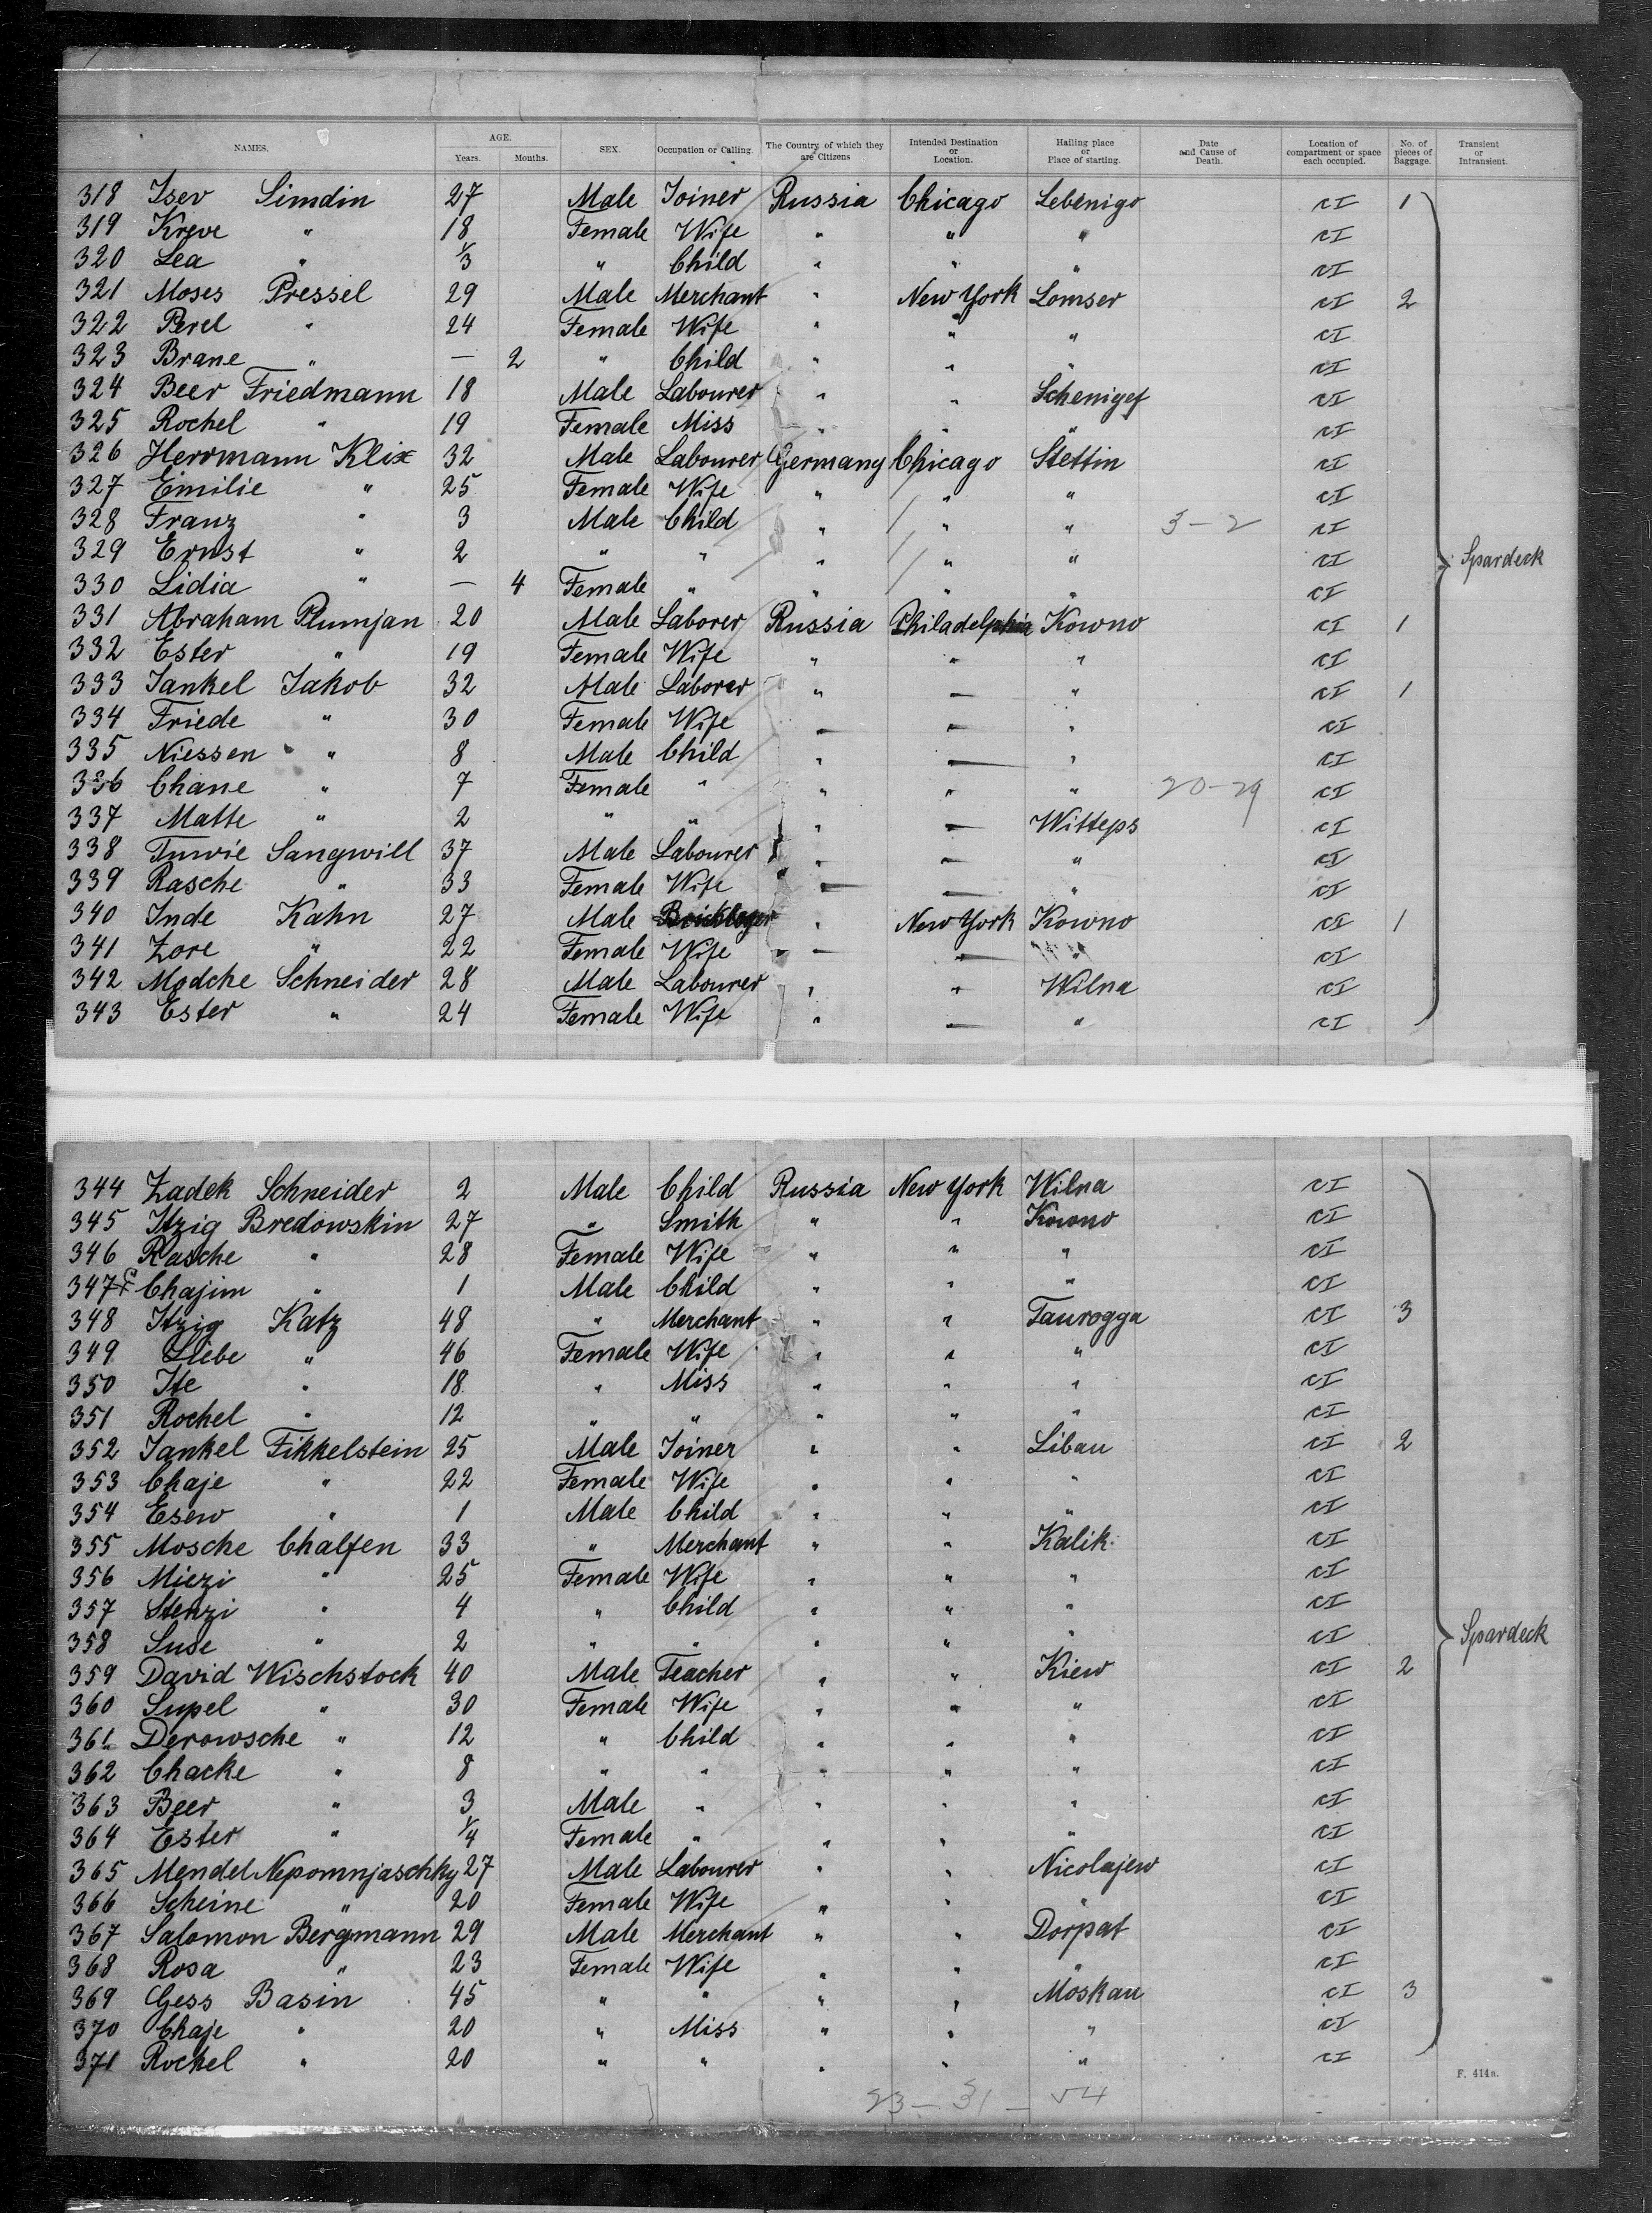 NAMES. AGE. Years. Months. SEX. Occupation or Calling. The Country of which they are Citizens Intended Destination or Location. Hailing place or Place of starting. Date and Cause of Death. Location of compartment or space each occupied. No. of pieces of Baggage. Transient or Intransient.
318 Isev Simdin 27 Male Joiner Russia Chicago Lebenigo cI 1
319 Kreve " 18 Female Wife " " " cI
320 Lea " 1/3 " Child " " " cI
321 Moses Pressel 29 Male Merchant " New York Lomser cI 2
322 Perel " 24 Female Wife " " " cI
323 Brane " — 2 " Child " " " cI
324 Beer Friedmann 18 Male Labourer " " Schenigef cI
325 Rochel " 19 Female Miss " " " cI
326 Herrmann Klix 32 Male Labourer Germany Chicago Stettin cI
327 Emilie " 25 Female Wife " " " cI
328 Franz " 3 Male Child " " " 3-2 cI
329 Ernst " 2 " " " " " cI Spardeck
330 Lidia " — 4 Female " " " " cI
331 Abraham Plumjan 20 Male Laborer Russia Philadelphia Kowno cI 1
332 Ester " 19 Female Wife " " " cI
333 Jankel Jakob 32 Male Laborer " — " cI 1
334 Friede " 30 Female Wife — — " cI
335 Niessen " 8 Male Child " — " cI
336 Chane " 7 Female " " " " 20-29 cI
337 Matte " 2 " " " — Witteps cI
338 Tuwie Sangwill 37 Male Labourer " — " cI
339 Rasche " 33 Female Wife — — " cI
340 Inde Kahn 27 Male Bricklayer " New York Kowno cI 1
341 Zore " 22 Female Wife " — " cI
342 Modche Schneider 28 Male Labourer " " Wilna cI
343 Ester " 24 Female Wife " — " cI
344 Zadek Schneider 2 Male Child Russia New York Wilna cI
345 Itzig Bredowskin 27 " Smith " " Kowno cI
346 Rasche " 28 Female Wife " " " cI
347 Chajim " 1 Male Child " " " cI
348 Itzig Katz 48 " Merchant " " Taurogga cI 3
349 Liebe " 46 Female Wife " " " cI
350 Ite " 18 " Miss " " " cI
351 Rochel " 12 " " " " " cI
352 Jankel Fikkelstein 25 Male Joiner " " Libau cI 2
353 Chaje " 22 Female Wife " " " cI
354 Esew " 1 Male Child " " " cI
355 Mosche Chalfen 33 " Merchant " " Kalik cI
356 Miezi " 25 Female Wife " " " cI
357 Stenzi " 4 " Child " " " cI
358 Suse " 2 " " " " " cI Spardeck
359 David Wischstock 40 Male Teacher " " Kiew cI 2
360 Supel " 30 Female Wife " " " cI
361 Derowsche " 12 " Child " " " cI
362 Chacke " 8 " " " " " cI
363 Beer " 3 Male " " " " cI
364 Ester " 1/4 Female " " " " cI
365 Mendel Nepomnjaschky 27 Male Labourer " " Nicolajew cI
366 Scheine " 20 Female Wife " " " cI
367 Salomon Bergmann 29 Male Merchant " " Dorpat cI
368 Rosa " 23 Female Wife " " " cI
369 Gess Basin 45 " " " " Moskau cI 3
370 Chaje " 20 " Miss " " " cI
371 Rochel " 20 " " " " " cI
F. 414a.
23-31-54